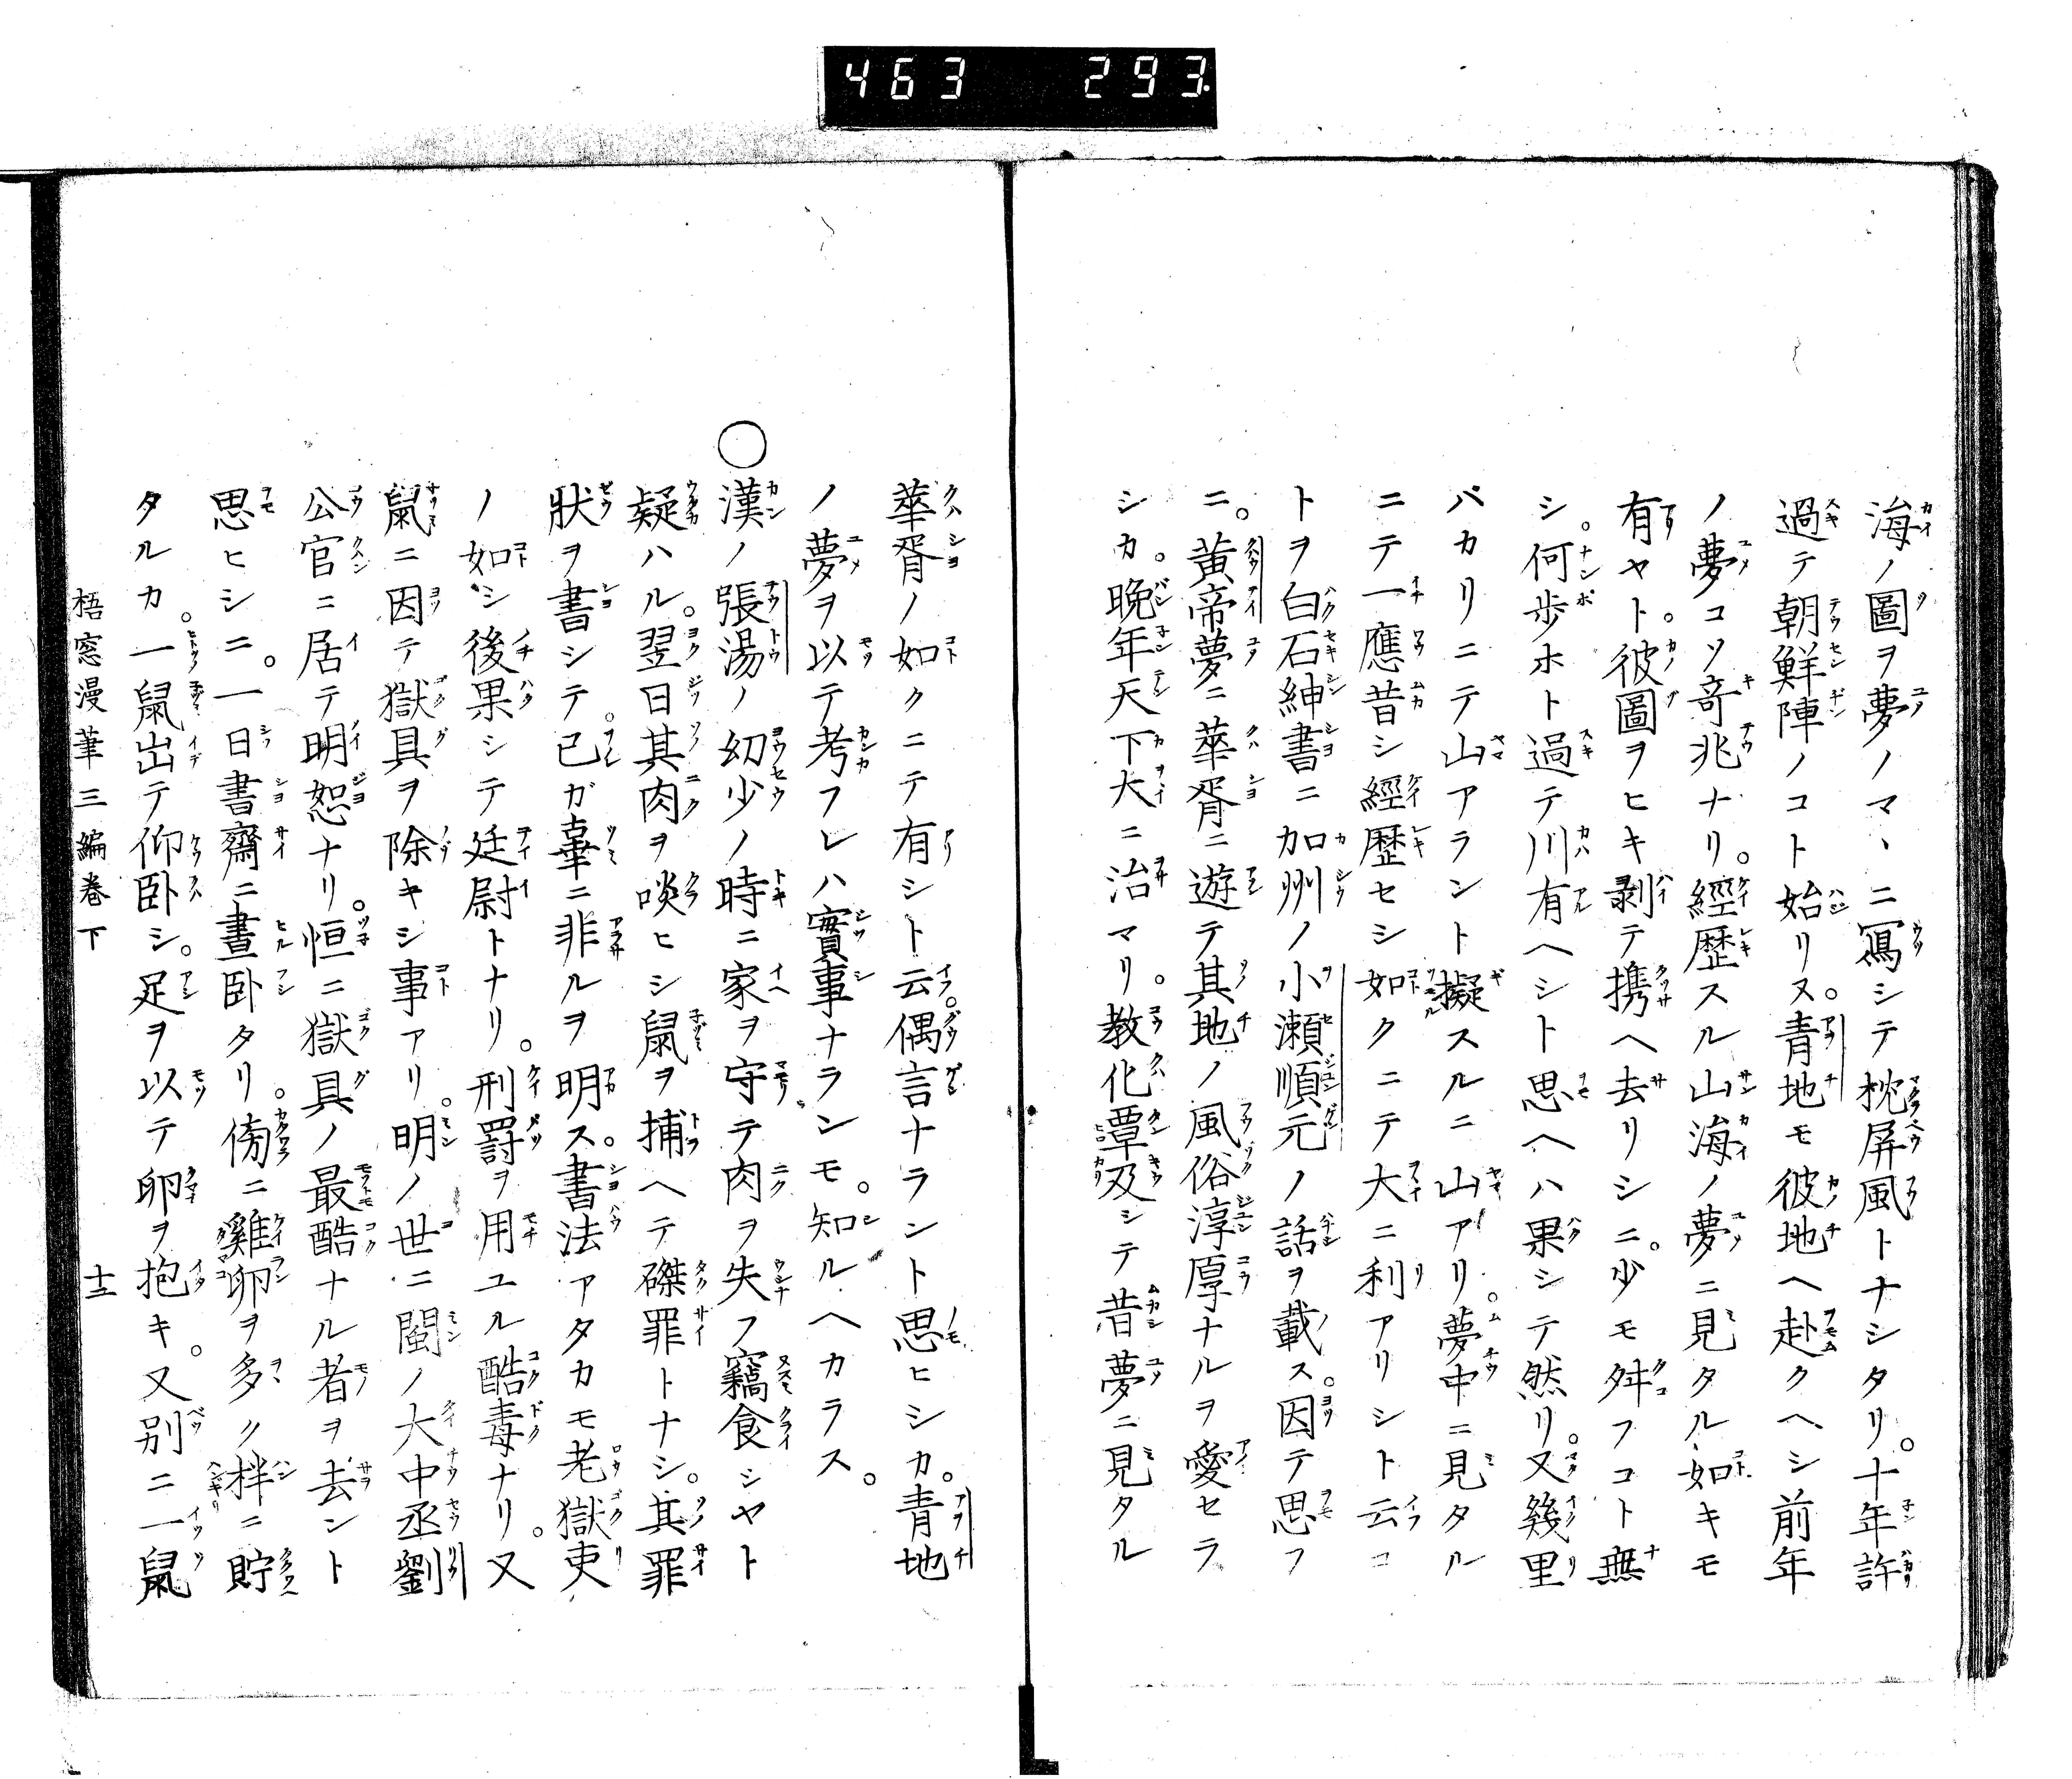 463 293
海ノ圖ヲ夢ノマヽニ寫シテ枕屏風トナシタリ。十年許
過テ朝鮮陣ノコト始リヌ。青地モ彼地ヘ赴クヘシ前年
ノ夢コソ奇兆ナリ。經歴スル山海ノ夢ニ見タル如キモ
有ヤト。彼圖ヲヒキ剥テ携ヘ去リシニ。少モ舛フコト無
シ。何歩ホト過テ川有ヘシト思ヘハ果シテ然リ。又幾里
バカリニテ山アラント擬スルニ山アリ。夢中ニ見タル
ニテ一應昔シ經歴セシ如クニテ大ニ利アリシト云コ
トヲ白石紳書ニ加州ノ小瀬順元ノ話ヲ載ス。因テ思フ
ニ。黄帝夢ニ華胥ニ遊テ其地ノ風俗淳厚ナルヲ愛セラ
シカ。晩年天下大ニ治マリ。教化覃及シテ昔夢ニ見タル
華胥ノ如クニテ有シト云。偶言ナラント思ヒシカ。青地
ノ夢ヲ以テ考フレハ實事ナランモ。知ルヘカラス。
○漢ノ張湯ノ幼少ノ時ニ家ヲ守テ肉ヲ失フ竊食シヤト
疑ハル。翌日其肉ヲ啖ヒシ鼠ヲ捕ヘテ磔罪トナシ。其罪
狀ヲ書シテ。己ガ辜ニ非ルヲ明ス。書法アタカモ老獄吏
ノ如シ後果シテ廷尉トナリ。刑罸ヲ用ユル酷毒ナリ。又
鼠ニ因テ獄具ヲ除キシ事アリ。明ノ世ニ閩ノ大中丞劉
公官ニ居テ明恕ナリ。恒ニ獄具ノ最酷ナル者ヲ去ント
思ヒシニ。一日書齋ニ晝卧タリ。傍ニ雞卵ヲ多ク柈ニ貯
タルカ。一鼠出テ仰卧シ。足ヲ以テ卵ヲ抱キ。又别ニ一鼠
梧窓漫筆三編卷下 十三